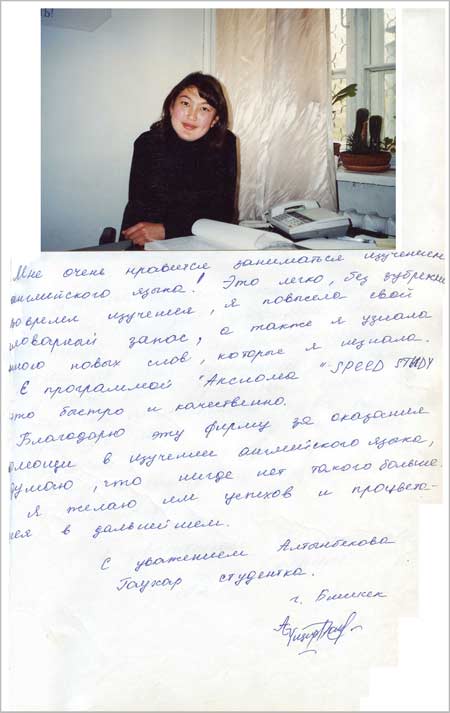 Ь!
Мне очень нравится заниматься изучением
английского языка! Это легко, без зубрежки
во время изучения, я повысила свой
словарный запас, а также я узнала
много новых слов, которые я не знала.
С программой "Аксиома" SPEED STUDY
это быстро и качественно.
Благодарю эту фирму за оказания
помощи в изучении английского языка,
думаю, что нигде нет такого больше.
я желаю им успехов и процвета-
ния в дальнейшем.
С уважением Алтынбекова
Гаухар студентка.
г. Бишкек